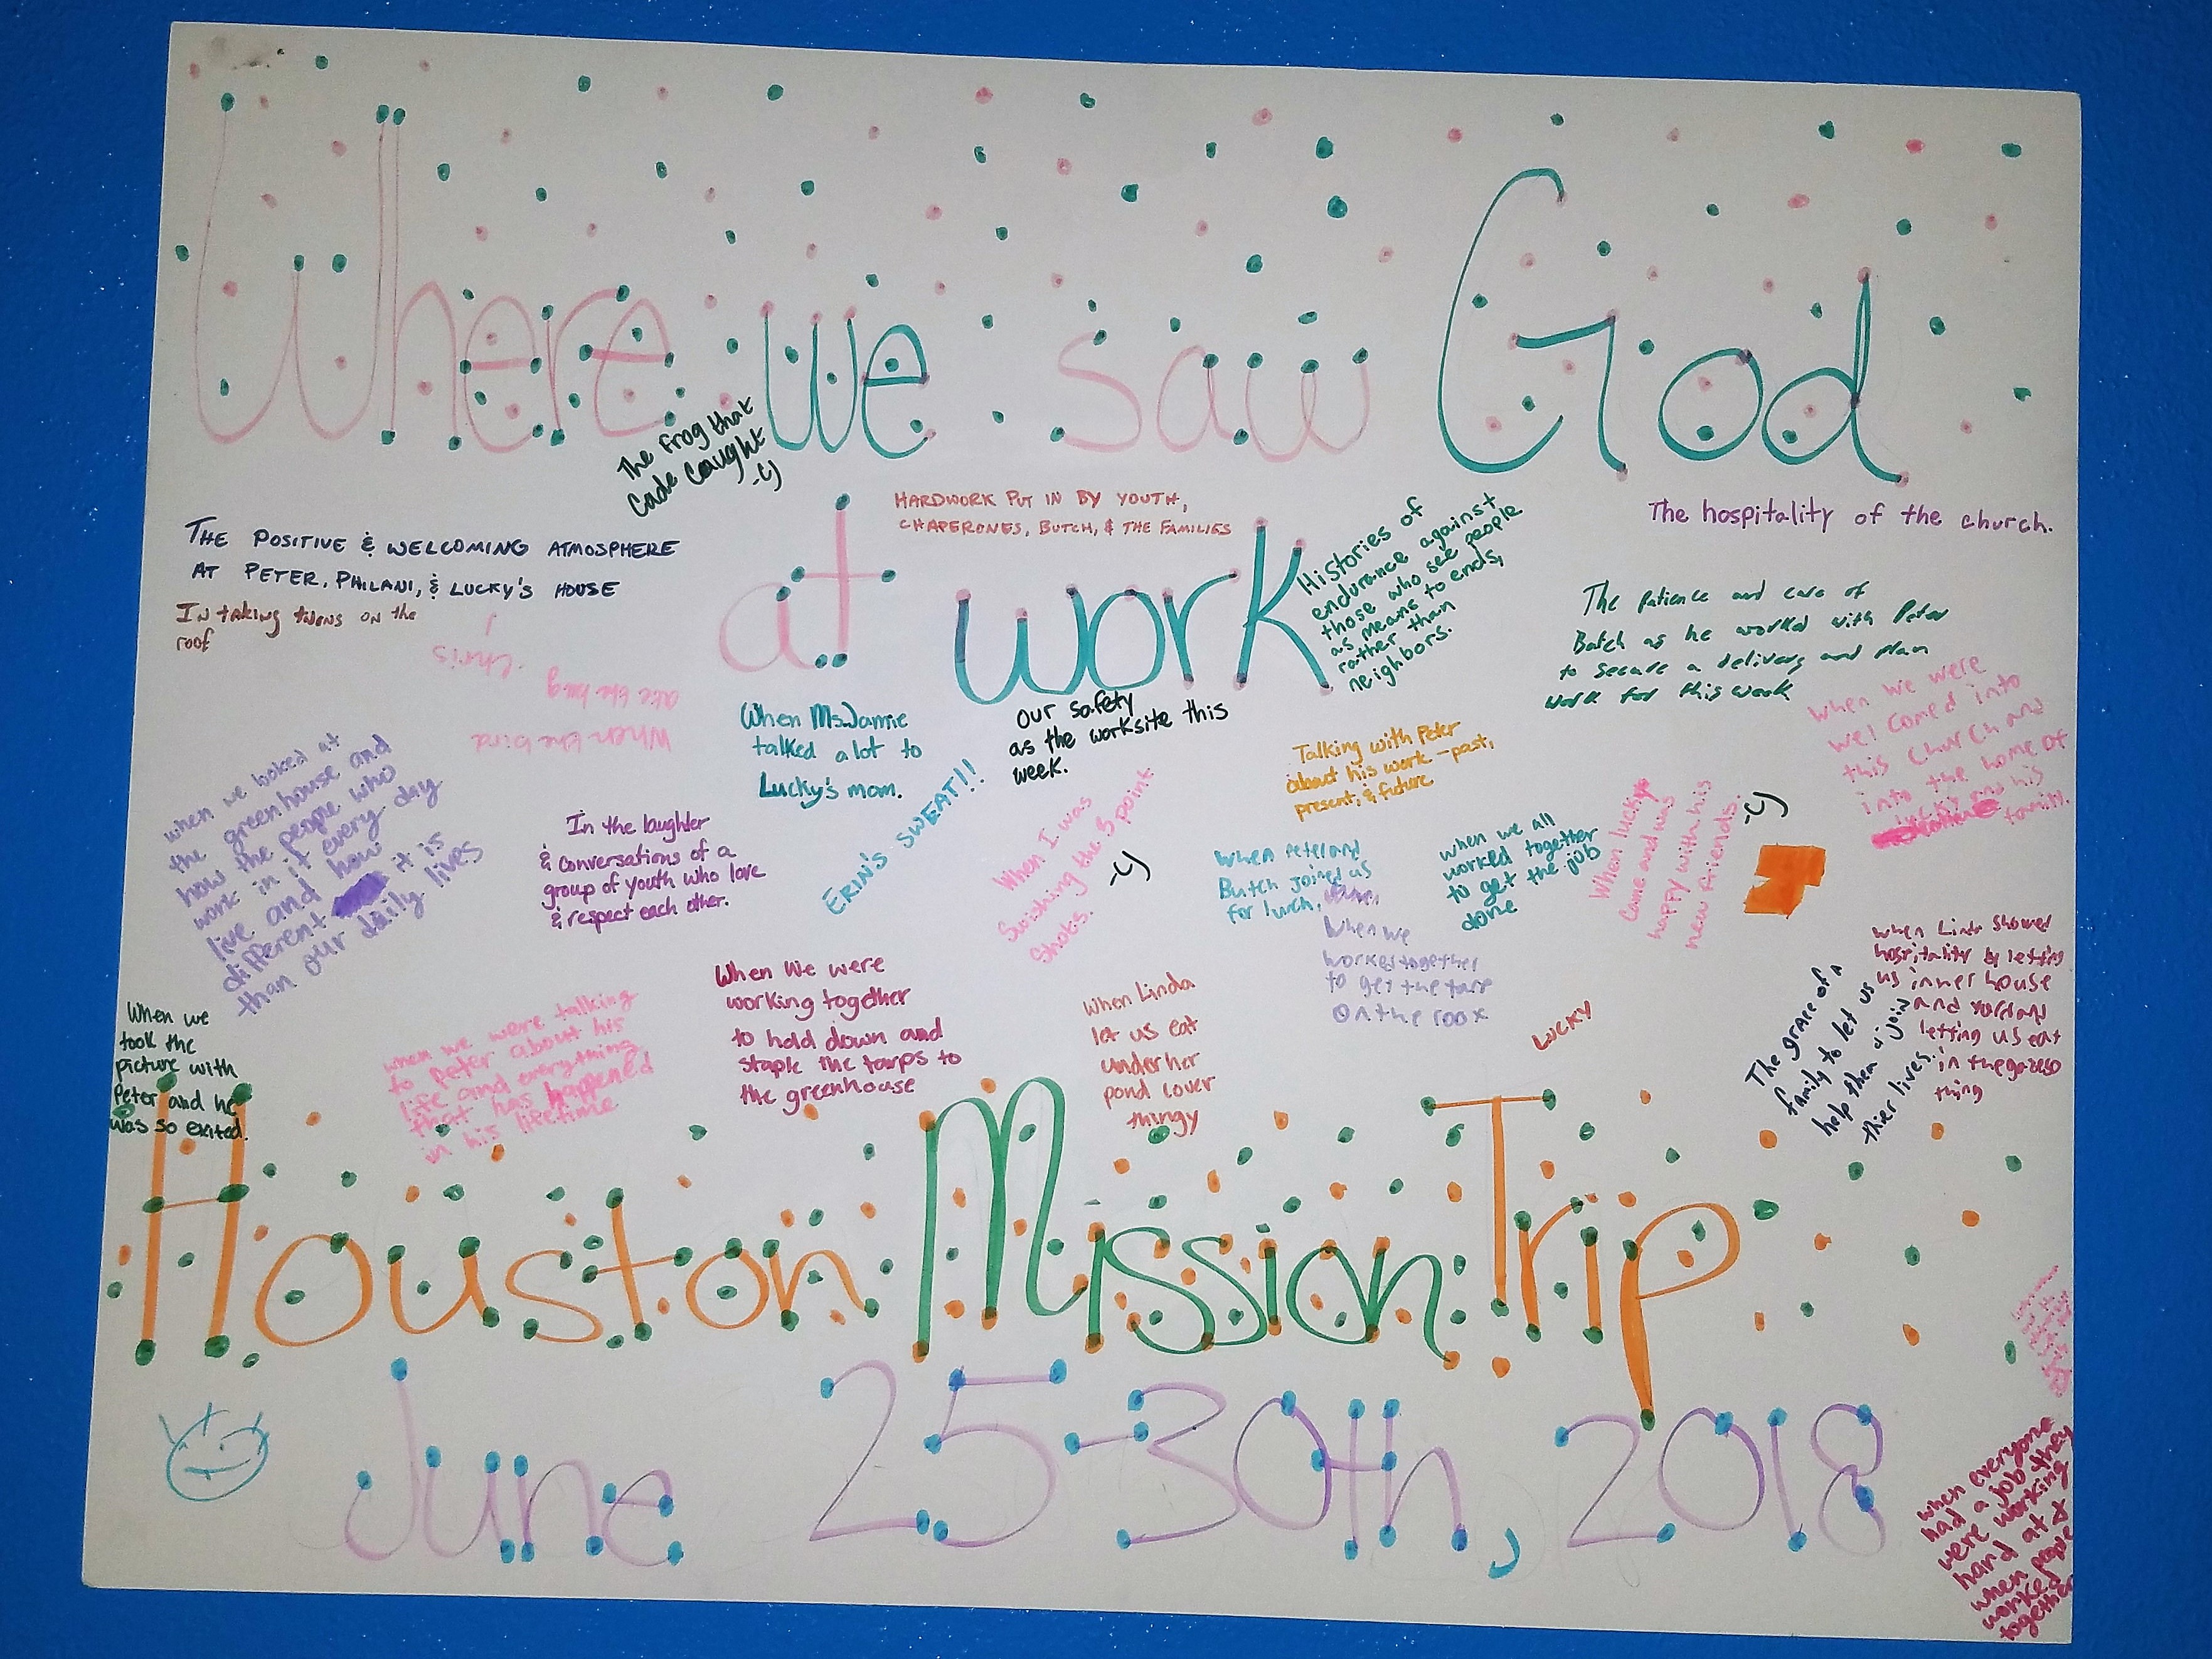 Where we saw God
at work
The frog that
Cade Caught
-CJ
HARDWORK PUT IN BY YOUTH,
CHAPERONES, BUTCH, & THE FAMILIES
The hospitality of the church.
THE POSITIVE & WELCOMING ATMOSPHERE
AT PETER, PHILANI, & LUCKY'S HOUSE
IN TAKING TURNS ON THE
roof
Histories of
endurance against
those who see people
as means to ends,
rather than
neighbors.
The patience and care of
Butch as he worked with Peter
to secure a delivery and plan
work for this week
When the bird
ate the bug
-Chris
When Ms.Jamie
talked a lot to
Lucky's mom.
our safety
as the worksite this
week.
Talking with Peter
about his work - past,
present, & future
when we were
welcomed into
this church and
into the home of
lucky and his
family.
when we looked at
the greenhouse and
how the people who
work in it every day
live and how
different it is
than our daily lives
In the laughter
& conversations of a
group of youth who love
& respect each other.
ERIN'S SWEAT!!
When I was
Swishing the 3 point
Shots.
-CJ
When Peter and
Butch joined us
for lunch,
when we all
worked together
to get the job
done
When lucky
came and was
happy with his
new friends.
-CJ
When we
worked together
to get the tarp
on the roof
When we
took the
picture with
Peter and he
was so exited.
when we were talking
to Peter about his
life and everything
that has happened
in his lifetime
When we were
working together
to hold down and
staple the tarps to
the greenhouse
when Linda
let us eat
under her
pond cover
thingy
LUCKY
The grace of a
family to let us
help them & join
thier lives.
when Linda showed
hospitality by letting
us in her house
and
letting us eat
in the gazebo
thing
Houston Mission Trip
June 25-30th, 2018
when everyone
had a job they
were working
hard at &
when people
worked
together